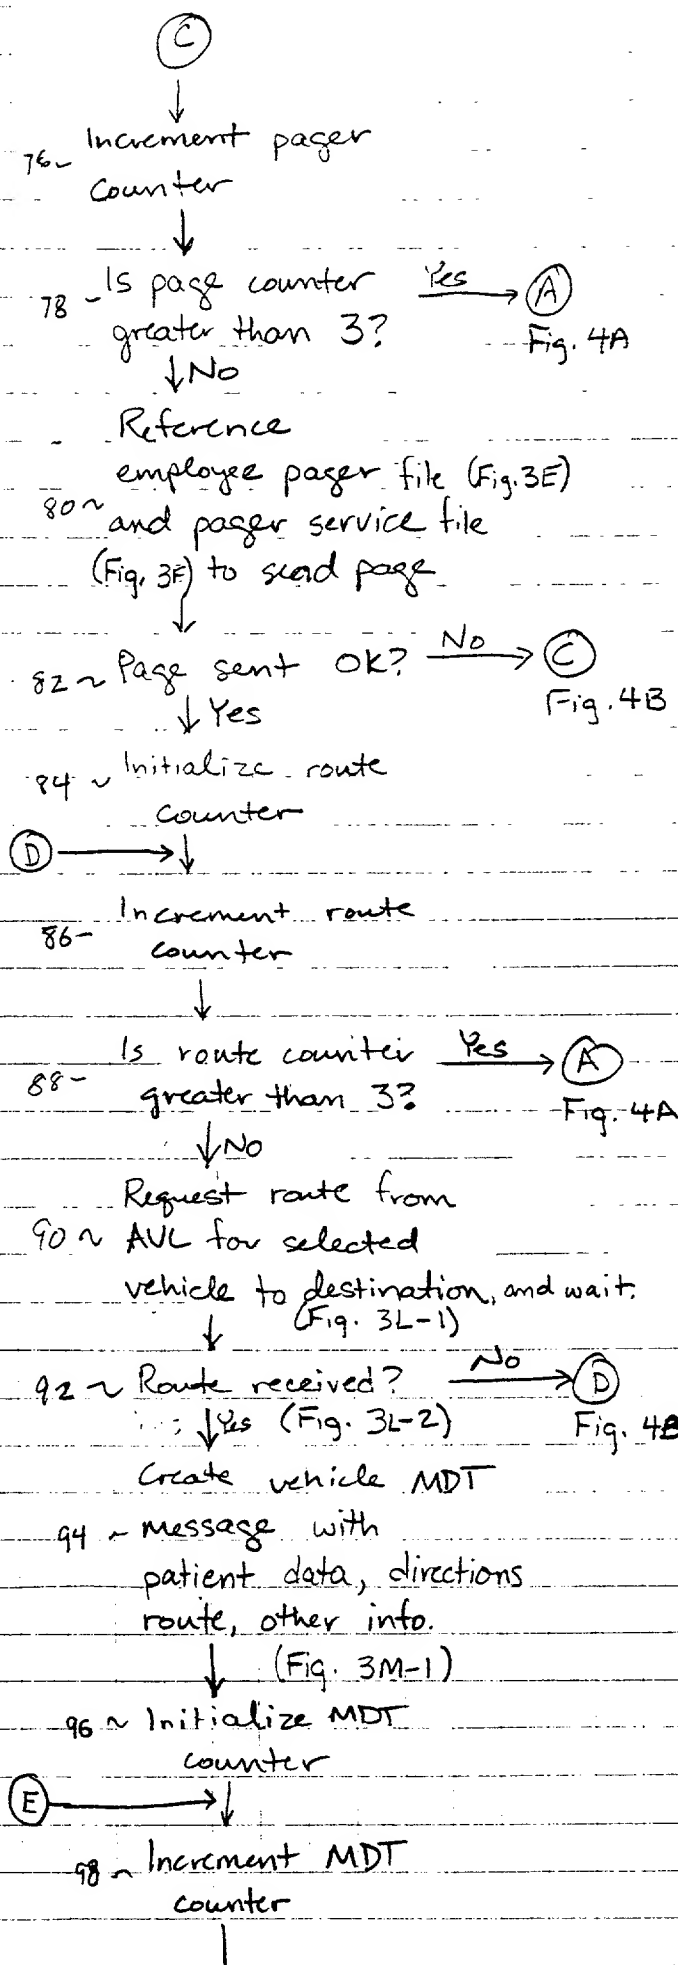 C
Increment pager
76~
counter
78 - Is page counter Yes A
greater than 3? Fig. 4A
No
Reference
employee pager file (Fig. 3E)
80~ and pager service file
(Fig. 3F) to send page
82 ~ Page sent OK? No C
Yes Fig. 4B
84 ~ Initialize route
counter
D
Increment route
86- counter
Is route counter Yes A
88- greater than 3? Fig. 4A
No
Request route from
90 ~ AVL for selected
vehicle to destination, and wait.
(Fig. 3L-1)
92 ~ Route received? No D
Yes (Fig. 3L-2) Fig. 4B
Create vehicle MDT
94 ~ message with
patient data, directions
route, other info.
(Fig. 3M-1)
96 ~ Initialize MDT
counter
E
98 ~ Increment MDT
counter